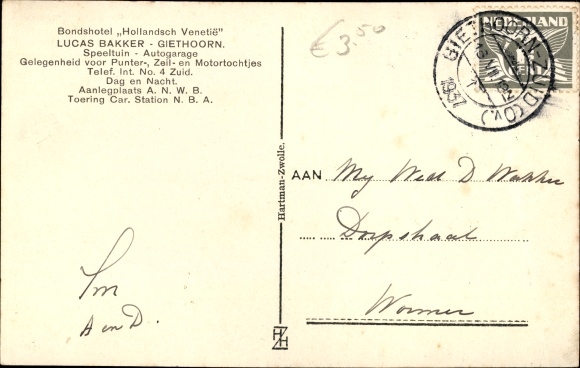 Bondshotel „Hollandsch Venetië"
LUCAS BAKKER - GIETHOORN.
Speeltuin - Autogarage
Gelegenheid voor Punter-, Zeil- en Motortochtjes
Telef. Int. No. 4 Zuid.
Dag en Nacht.
Aanlegplaats A. N. W. B.
Toering Car. Station N. B. A.
€ 3.50
NEDERLAND
GIETHOORN-ZUID (Ov.)
1937
Hartman-Zwolle.
AAN Mej Wed D Wakker
Dorpstraat
Wormer
A en D.
HZH